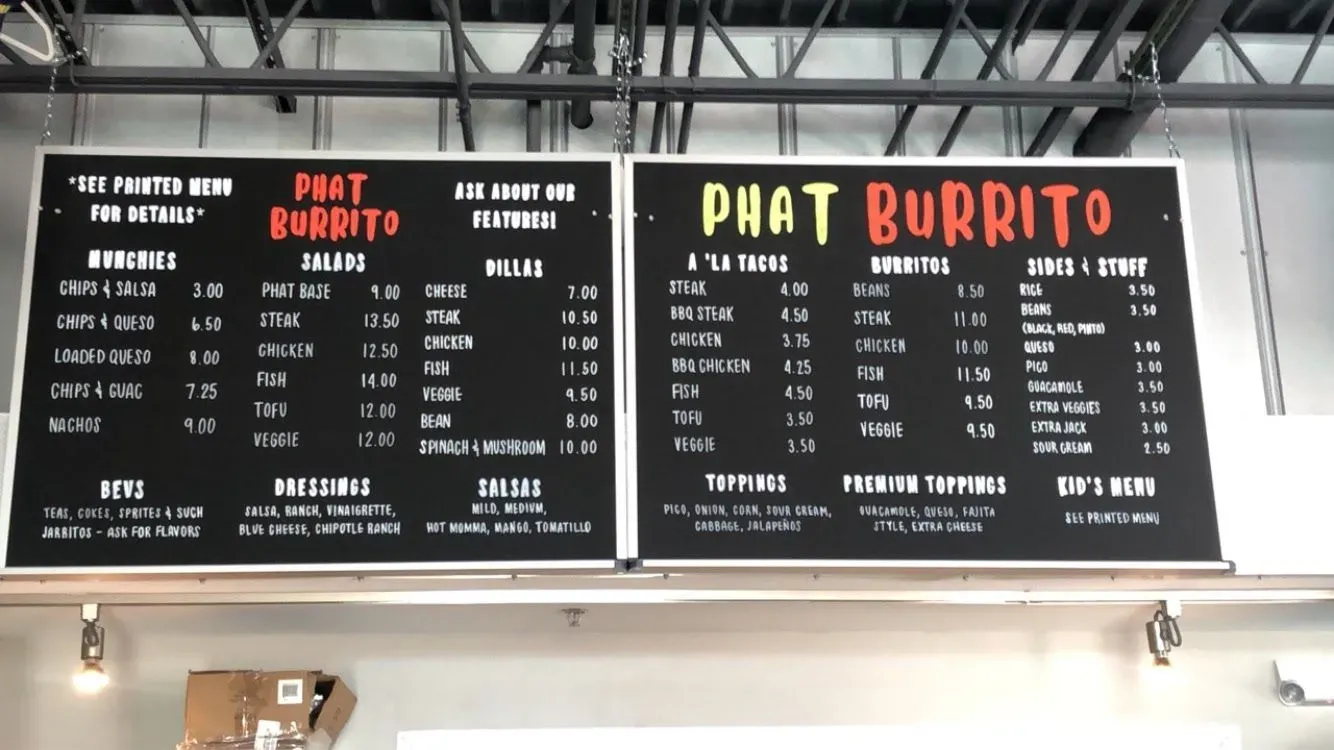 *SEE PRINTED MENU
FOR DETAILS*
PHAT
BURRITO
ASK ABOUT OUR
FEATURES!
MUNCHIES
CHIPS & SALSA 3.00
CHIPS & QUESO 6.50
LOADED QUESO 8.00
CHIPS & GUAC 7.25
NACHOS 9.00
SALADS
PHAT BASE 9.00
STEAK 13.50
CHICKEN 12.50
FISH 14.00
TOFU 12.00
VEGGIE 12.00
DILLAS
CHEESE 7.00
STEAK 10.50
CHICKEN 10.00
FISH 11.50
VEGGIE 9.50
BEAN 8.00
SPINACH & MUSHROOM 10.00
BEVS
TEAS, COKES, SPRITES & SUCH
JARRITOS - ASK FOR FLAVORS
DRESSINGS
SALSA, RANCH, VINAIGRETTE,
BLUE CHEESE, CHIPOTLE RANCH
SALSAS
MILD, MEDIUM,
HOT MOMMA, MANGO, TOMATILLO
PHAT BURRITO
A 'LA TACOS
STEAK 4.00
BBQ STEAK 4.50
CHICKEN 3.75
BBQ CHICKEN 4.25
FISH 4.50
TOFU 3.50
VEGGIE 3.50
BURRITOS
BEANS 8.50
STEAK 11.00
CHICKEN 10.00
FISH 11.50
TOFU 9.50
VEGGIE 9.50
SIDES & STUFF
RICE 3.50
BEANS 3.50
(BLACK, RED, PINTO)
QUESO 3.00
PICO 3.00
GUACAMOLE 3.50
EXTRA VEGGIES 3.50
EXTRA JACK 3.00
SOUR CREAM 2.50
TOPPINGS
PICO, ONION, CORN, SOUR CREAM,
CABBAGE, JALAPEÑOS
PREMIUM TOPPINGS
GUACAMOLE, QUESO, FAJITA
STYLE, EXTRA CHEESE
KID'S MENU
SEE PRINTED MENU